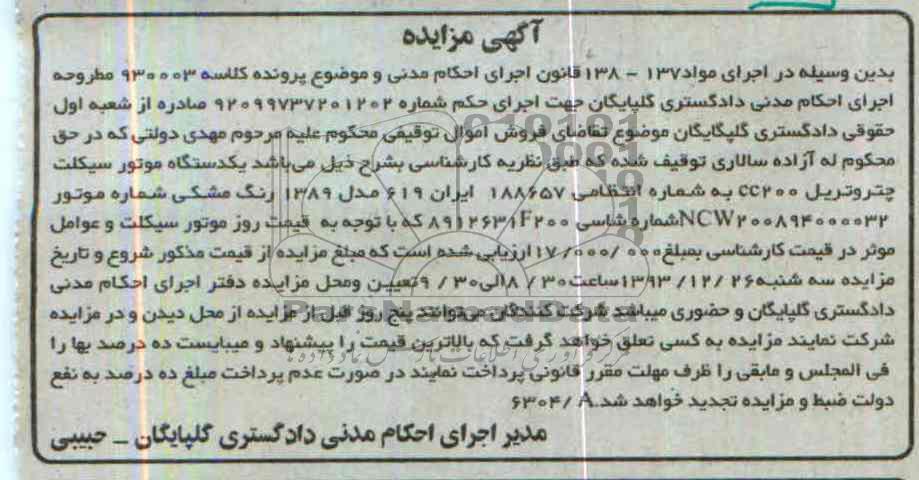 آگهی مزایده
بدین وسیله در اجرای مواد۱۳۷ – ۱۳۸قانون اجرای احکام مدنی و موضوع پرونده کلاسه ۹۳۰۰۰۳ مطروحه
اجرای احکام مدنی دادگستری گلپایگان جهت اجرای حکم شماره ۹۲۰۹۹۷۳۷۲۰۱۲۰۲ صادره از شعبه اول
حقوقی دادگستری گلپگایگان موضوع تقاضای فروش اموال توقیفی محکوم علیه مرحوم مهدی دولتی که در حق
محکوم له آزاده سالاری توقیف شده که طبق نظریه کارشناسی بشرح ذیل می‌باشد یکدستگاه موتور سیکلت
چتروتریل cc۲۰۰ به شماره انتظامی ۱۸۸۶۵۷ ایران ۶۱۹ مدل ۱۳۸۹ رنگ مشکی شماره موتور
NCW۲۰۰۸۹۴۰۰۰۰۳۲شماره شاسی ۸۹۱۲۶۳۱F۲۰۰ که با توجه به قیمت روز موتور سیکلت و عوامل
موثر در قیمت کارشناسی بمبلغ۱۷/۰۰۰/۰۰۰ ارزیابی شده است که مبلغ مزایده از قیمت مذکور شروع و تاریخ
مزایده سه شنبه۲۶ /۱۲/ ۱۳۹۳ساعت۳۰ / ۸الی۳۰ / ۹تعیین ومحل مزایده دفتر اجرای احکام مدنی
دادگستری گلپایگان و حضوری میباشد شرکت کنندگان می‌توانند پنج روز قبل از مزایده از محل دیدن و در مزایده
شرکت نمایند مزایده به کسی تعلق خواهد گرفت که بالاترین قیمت را پیشنهاد و میبایست ده درصد بها را
فی المجلس و مابقی را ظرف مهلت مقرر قانونی پرداخت نمایند در صورت عدم پرداخت مبلغ ده درصد به نفع
دولت ضبط و مزایده تجدید خواهد شد.۶۳۰۴/ A
مدیر اجرای احکام مدنی دادگستری گلپایگان – حبیبی